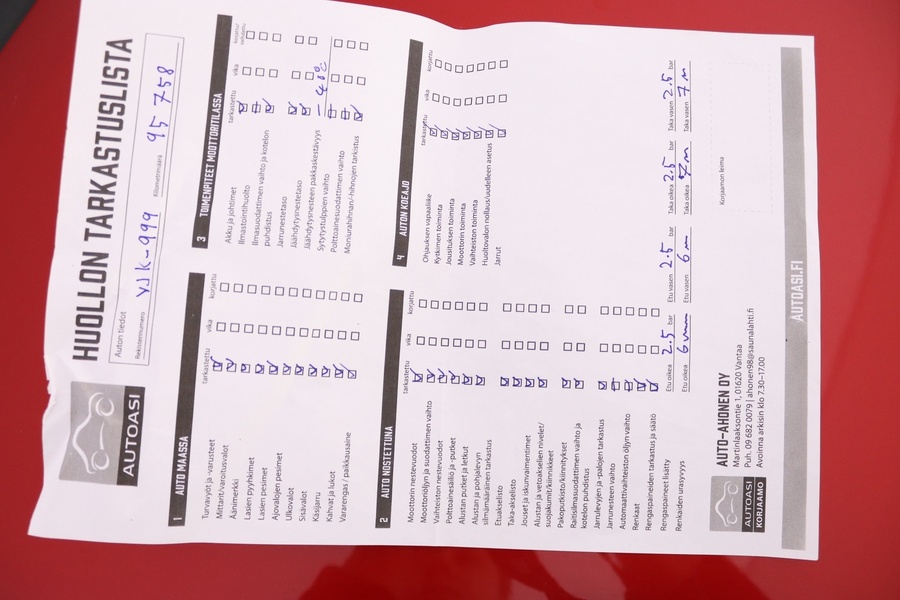 AUTOASI
HUOLLON TARKASTUSLISTA
Auton tiedot
Rekisterinumero YJK-999 Kilometrimäärä 95 758
1 AUTO MAASSA
tarkastettu vika korjattu
Turvavyöt ja -varusteet
Mittarit/varoitusvalot
Äänimerkki
Lasien pyyhkimet
Lasien pesimet
Ajovalojen pesimet
Ulkovalot
Sisävalot
Käsijarru
Kahvat ja lukot
Vararengas / paikkausaine
3 TOIMENPITEET MOOTTORITILASSA
tarkastettu vika
Akku ja johtimet
Ilmastointihuolto
Ilmasuodattimen vaihto ja kotelon
puhdistus
Jarrunestetaso
Jäähdytysnestetaso
Jäähdytysnesteen pakkaskestävyys
Sytytystulppien vaihto
Polttoainesuodattimen vaihto
Moniurahihnan/-hihnojen tarkistus
2 AUTO NOSTETTUNA
tarkastettu vika korjattu
Moottorin nestevuodot
Moottoriöljyn ja suodattimen vaihto
Vaihteiston nestevuodot
Polttoainesäiliö ja -putket
Alustan putket ja letkut
Alustan ja pohjalevyn
silmämääräinen tarkastus
Etuakselisto
Taka-akselisto
Jouset ja iskunvaimentimet
Alustan ja vetoakselien nivelet/
suojakumit/kiinnikkeet
Pakoputkisto/kiinnitykset
Raitisilmasuodattimen vaihto ja
kotelon puhdistus
Jarrulevyjen ja -palojen tarkastus
Jarrunesteen vaihto
Automaattivaihteiston öljyn vaihto
Renkaat
Rengaspaineiden tarkastus ja säätö
4 AUTON KOEAJO
tarkastettu vika korjattu
Ohjauksen vapaaliike
Kytkimen toiminta
Jousituksen toiminta
Moottorin toiminta
Vaihteiston toiminta
Huoltovalon nollaus/uudelleen asetus
Jarrut
Rengaspaineet lisätty Etu oikea 2.5 bar Etu vasen 2.5 bar Taka oikea 2.5 bar Taka vasen 2.5 bar
Renkaiden urasyvyys Etu oikea 6 mm Etu vasen 6 m Taka oikea 7 m Taka vasen 7 m
AUTOASI
KORJAAMO
AUTO-AHONEN OY
Martinlaaksontie 1, 01620 Vantaa
Puh. 09 682 0079 | ahonen98@saunalahti.fi
Avoinna arkisin klo 7.30–17.00
Korjaamon leima
AUTOASI.FI